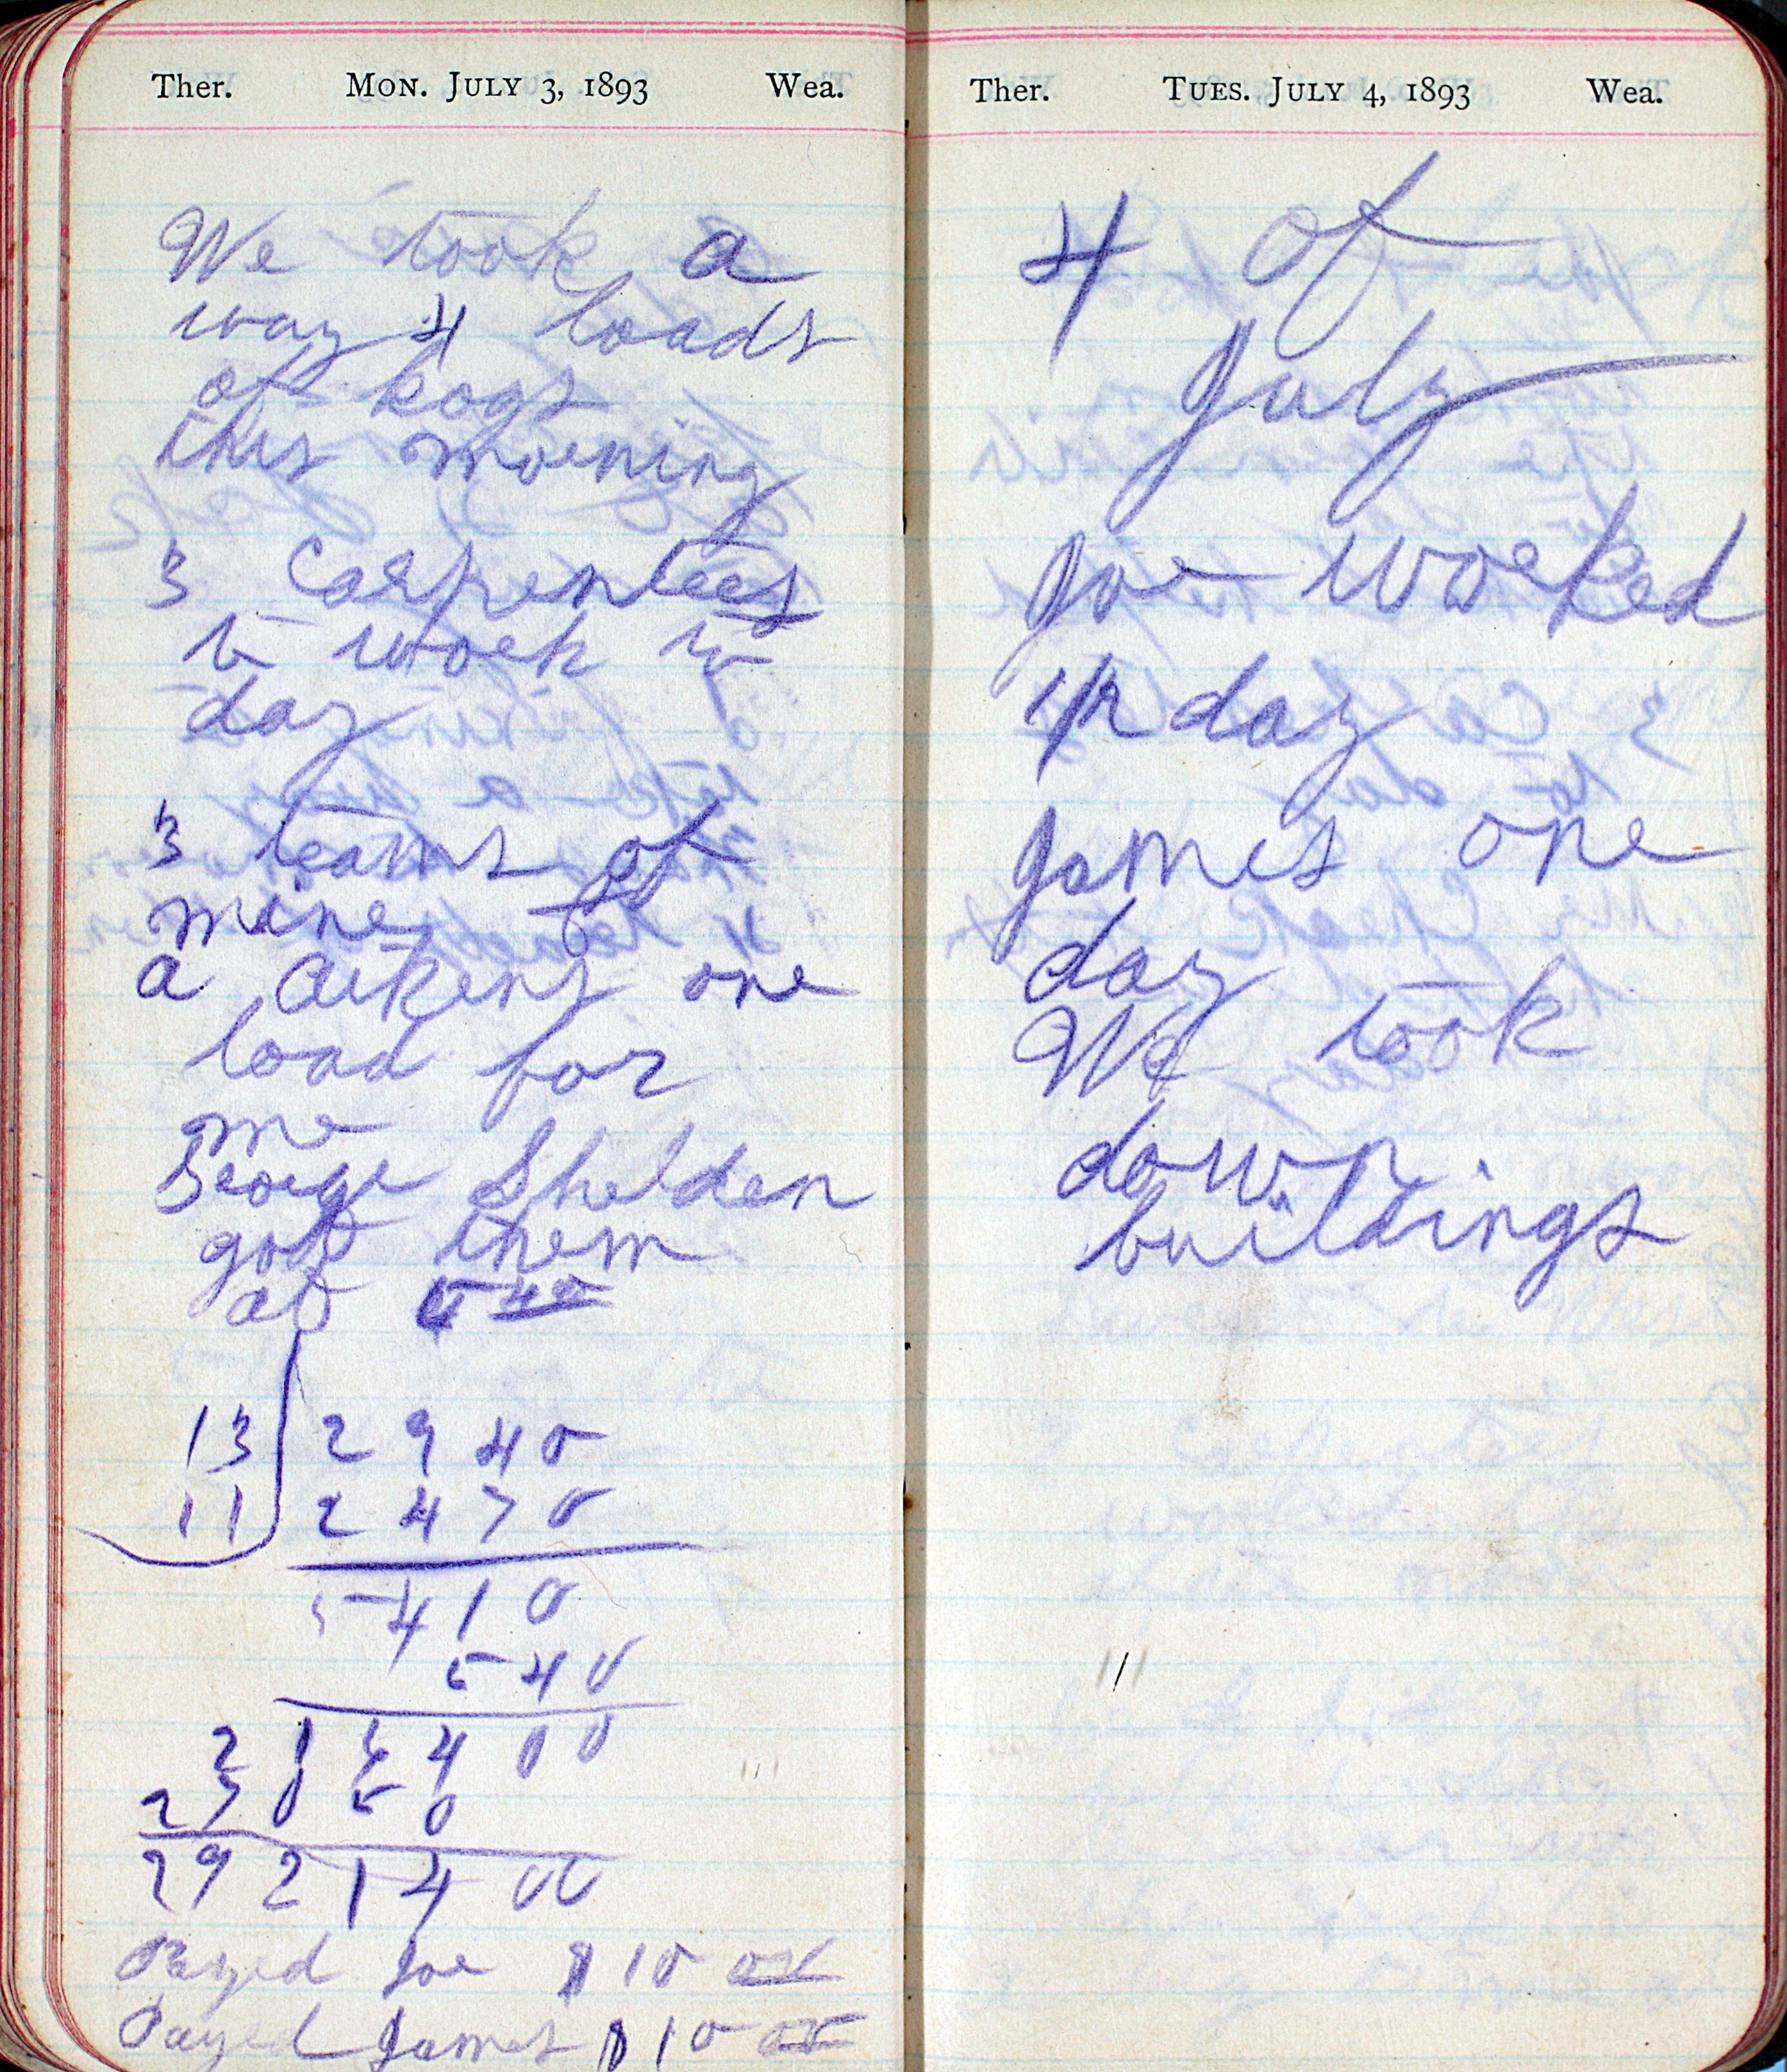 Ther. MON. JULY 3, 1893 Wea.
We took a
way 4 loads
of hogs
this morning
3 Carpenters
to work to
day
3 teams of
mine
a Aikens one
load for
me
George Shelden
got them
at 5 40
13 2940
11 2470
5410
540
2164 00
27050
29214 00
Payed Joe $ 10 00
Payed James $ 10 00
Ther. TUES. JULY 4, 1893 Wea.
4 of
July
Joe worked
1/2 day
James one
day
We took
down
buildings